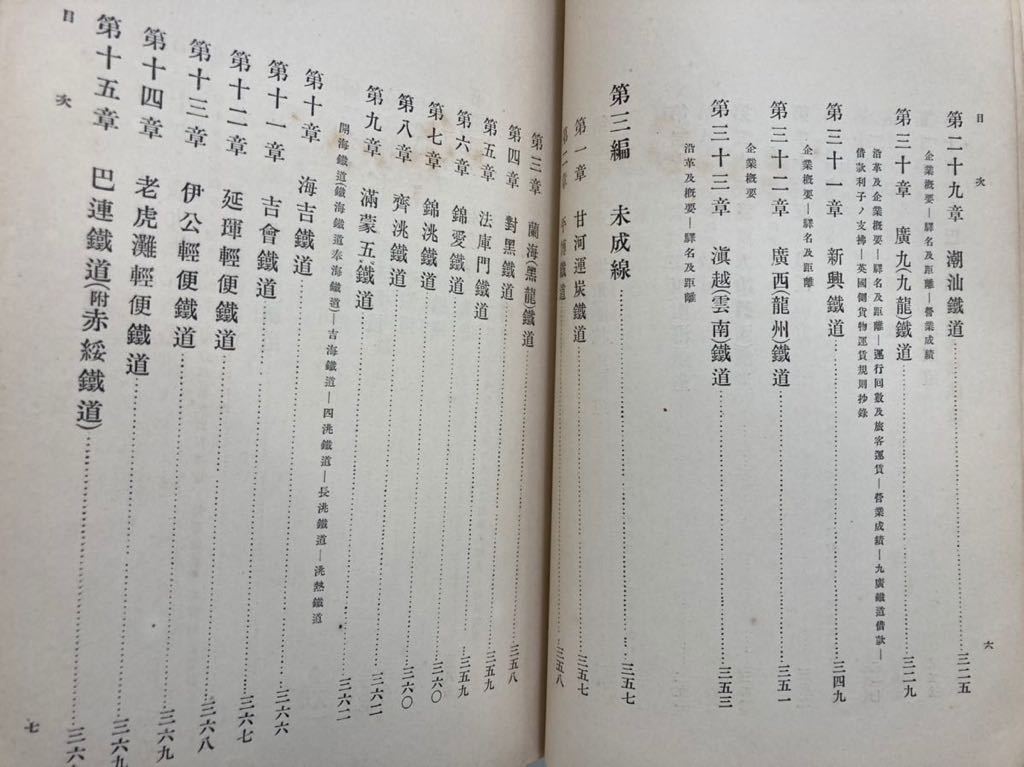 目次
第二十九章 潮汕鐵道……三二五
企業概要―驛名及距離―營業成績
第三十章 廣九(九龍)鐵道……三二九
沿革及企業概要―驛名及距離―運行回數及旅客運賃―營業成績―九廣鐵道借款―
借款利子ノ支拂―英國側貨物運賃規則抄錄
第三十一章 新興鐵道……三四九
企業概要―驛名及距離
第三十二章 廣西(龍州)鐵道……三五一
企業概要
第三十三章 滇越(雲南)鐵道……三五三
沿革及概要―驛名及距離
第三編 未成線……三五七
第一章 甘河運炭鐵道……三五七
第二章 鐵道……三五八
六
第三章 蘭海(黑龍)鐵道……三五八
第四章 對黑鐵道……三五八
第五章 法庫門鐵道……三五九
第六章 錦愛鐵道……三五九
第七章 錦洮鐵道……三六〇
第八章 齊洮鐵道……三六〇
第九章 滿蒙五鐵道……三六二
開海鐵道(鐵海鐵道奉海鐵道)―吉海鐵道―四洮鐵道―長洮鐵道―洮熱鐵道……三六二
第十章 海吉鐵道……三六六
第十一章 吉會鐵道……三六七
第十二章 延琿輕便鐵道……三六八
第十三章 伊公輕便鐵道……三六九
第十四章 老虎灘輕便鐵道……三六九
第十五章 巴連鐵道(附赤綏鐵道)……三六
目次
七